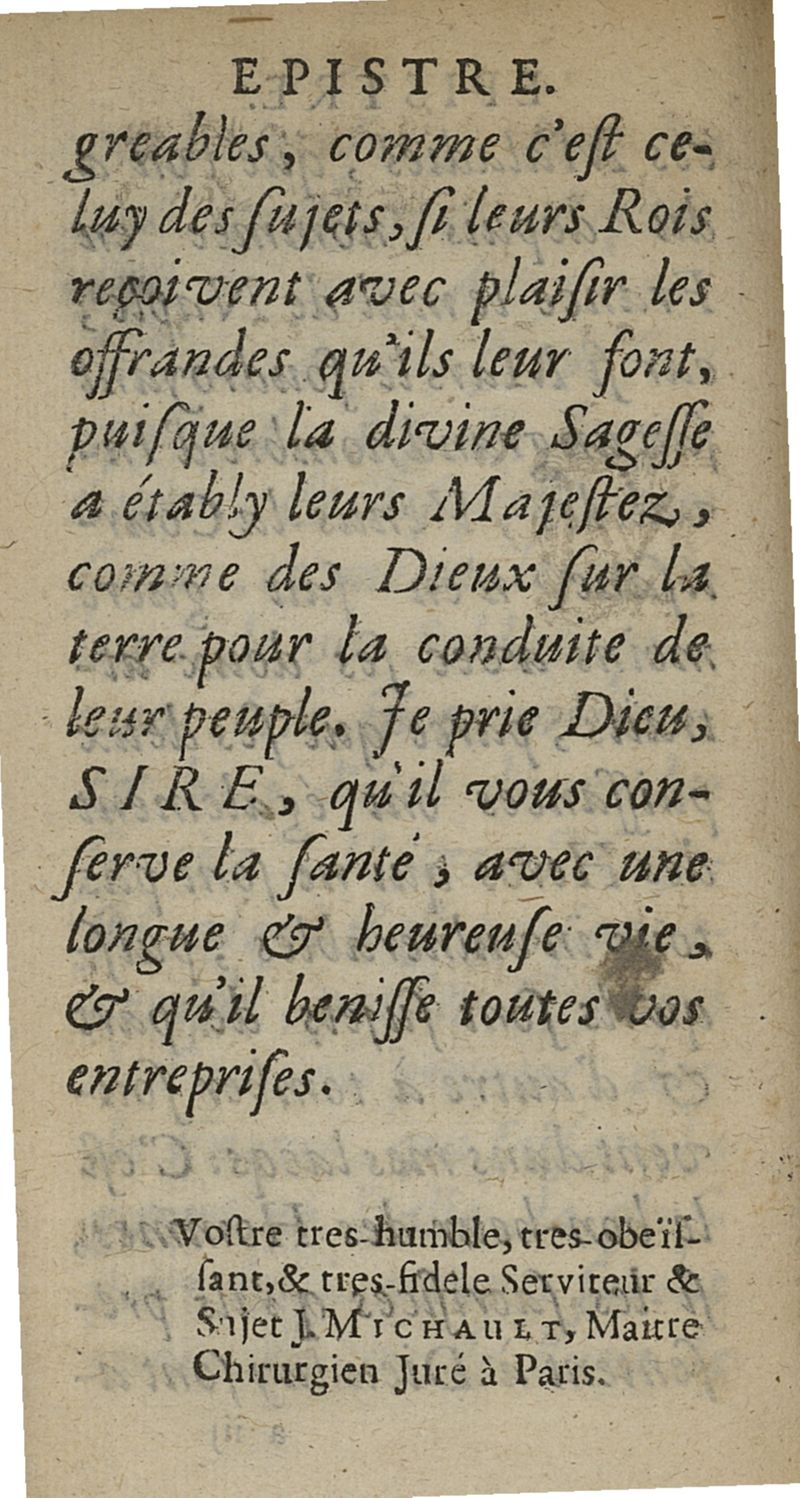 EPISTRE.
greables, comme c'eſt ce-
luy des ſujets, ſi leurs Rois
reçoivent avec plaiſir les
offrandes qu'ils leur font,
puiſque la divine Sageſſe
a étably leurs Majeſtez,
comme des Dieux ſur la
terre pour la conduite de
leur peuple. Je prie Dieu,
SIRE, qu'il vous con-
ſerve la ſanté, avec une
longue & heureuſe vie,
& qu'il beniſſe toutes vos
entrepriſes.
Voſtre tres-humble, tres-obeïſ-
ſant, & tres-fidele Serviteur &
Sujet J. MICHAULT, Maitre
Chirurgien Juré à Paris.